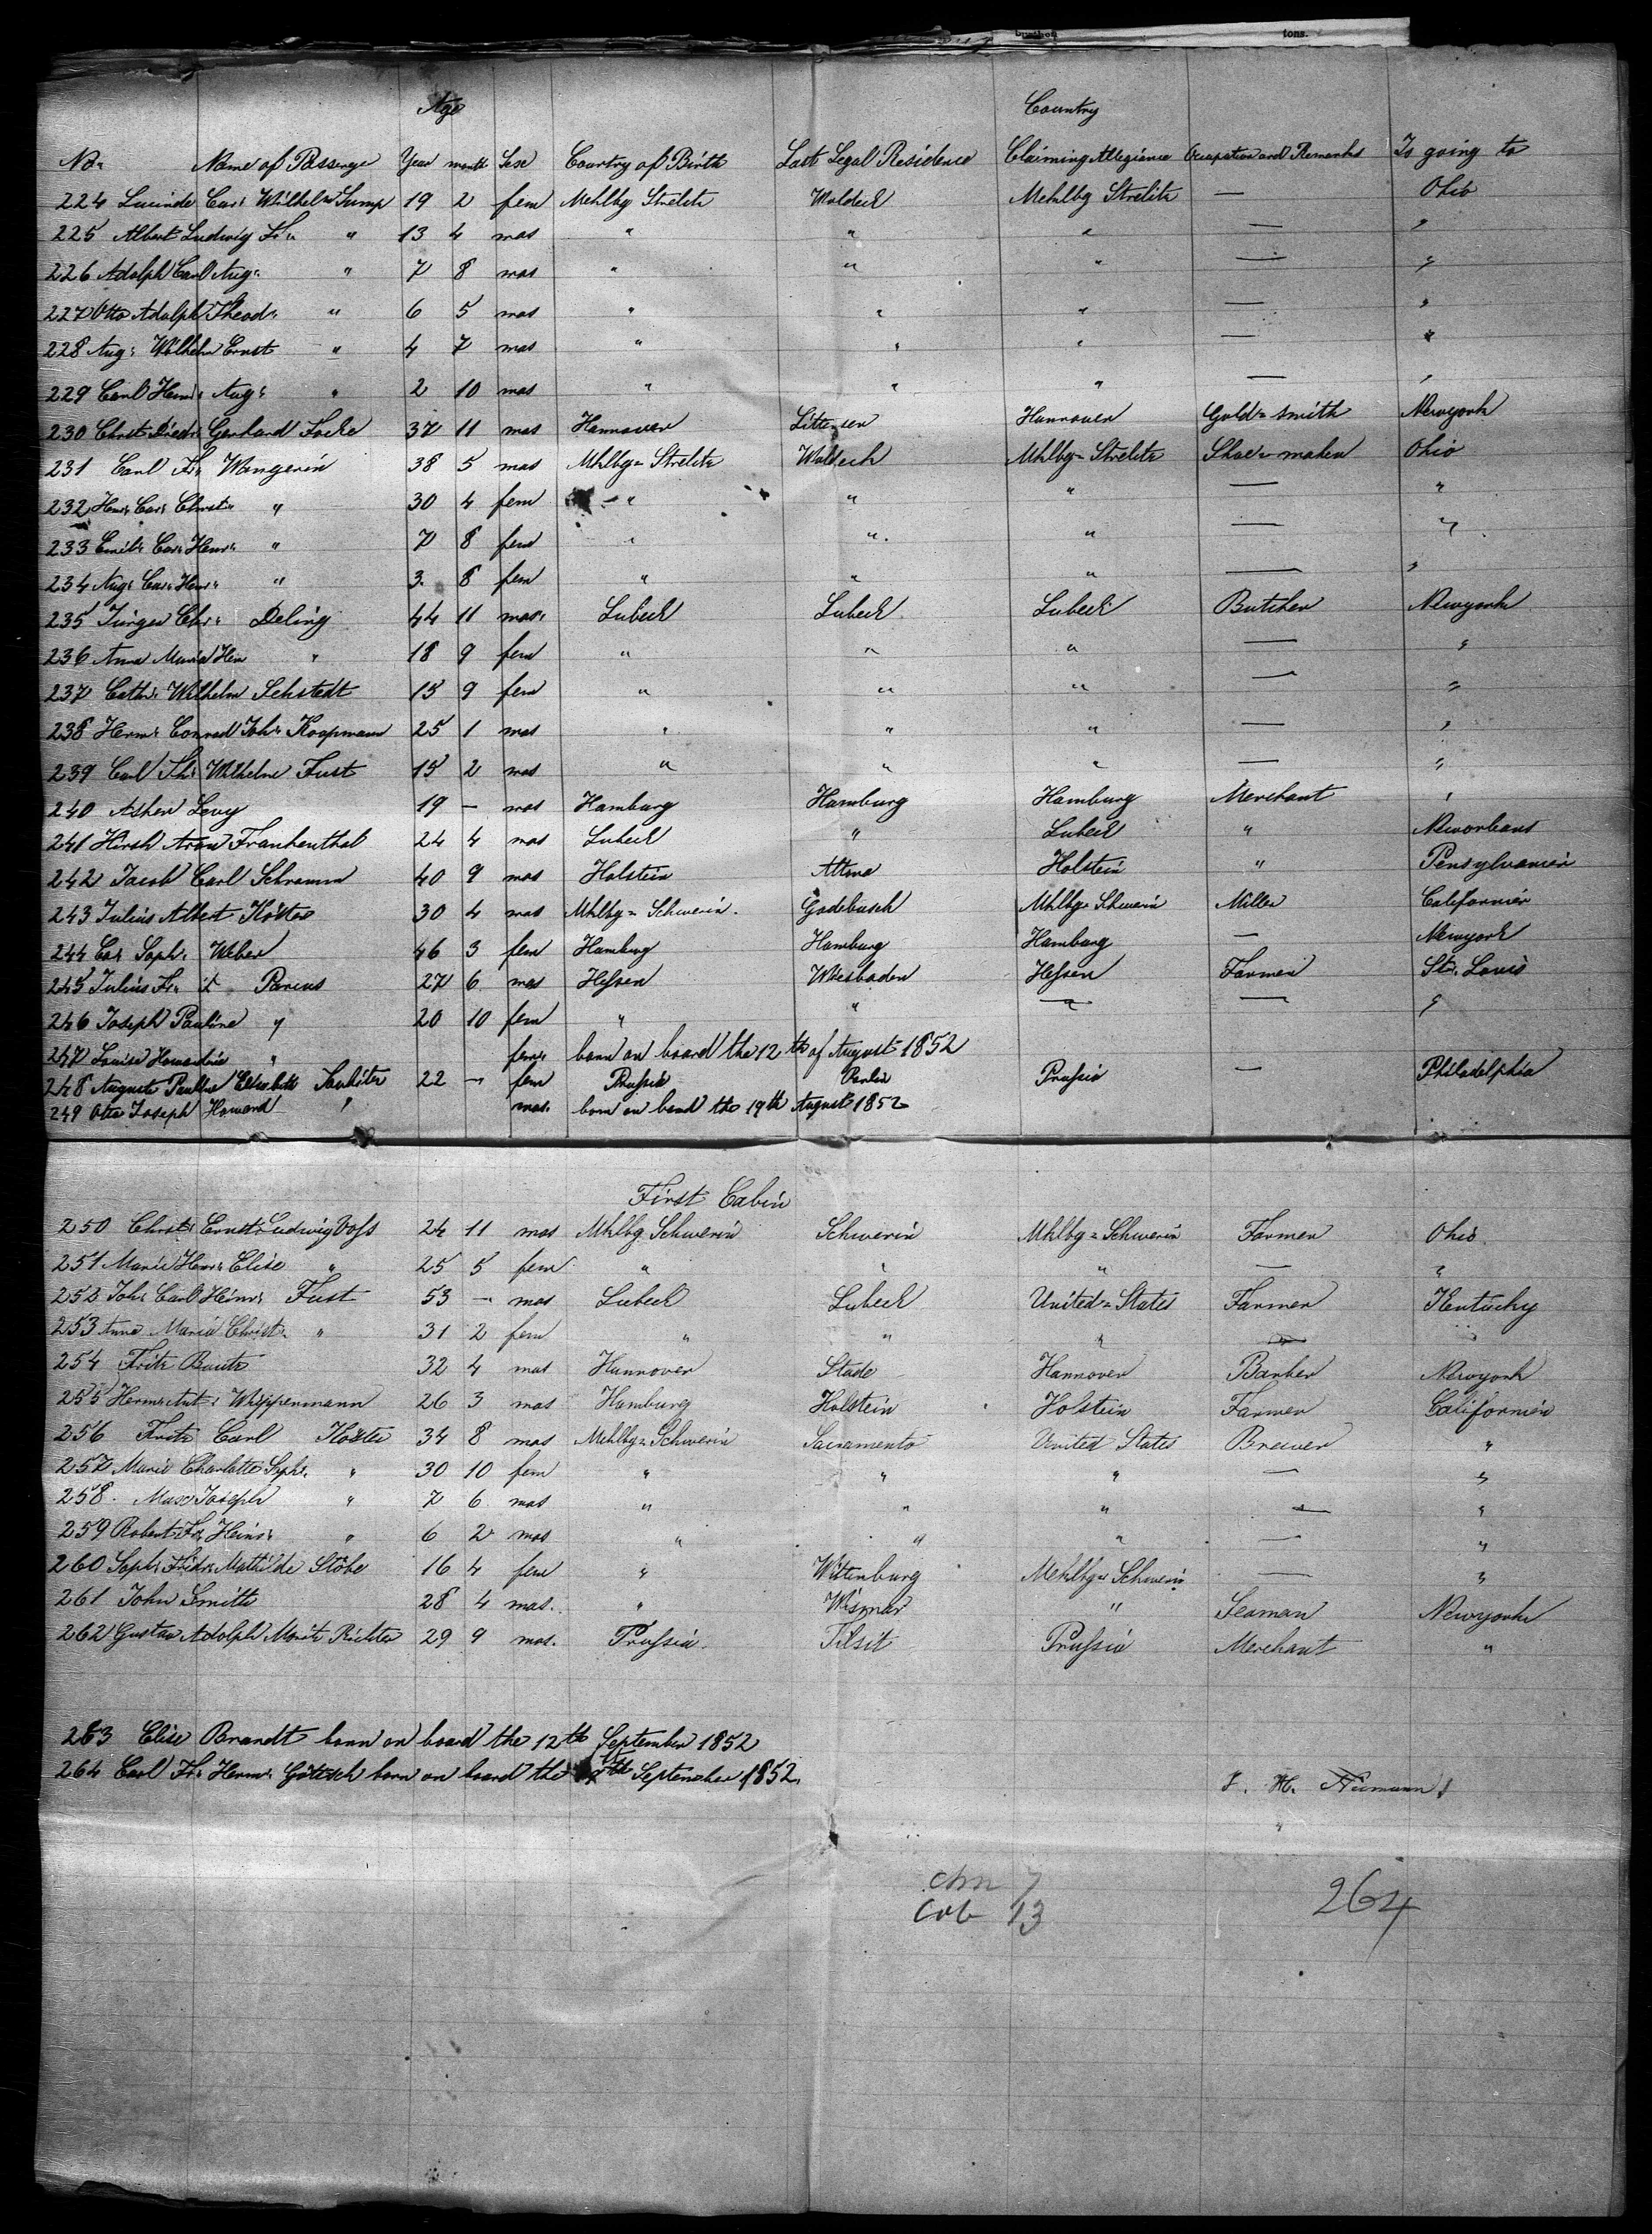 burthen tons.
Age Country
No. Name of Passenger Year month Sex Country of Birth Last Legal Residence Claiming Allegiance Occupation and Remarks Is going to
224 Lucinde Car: Wilhelm Sump 19 2 fem Mehlbg Strelitz Woldeck Mehlbg Strelitz — Ohio
225 Albert Ludwig Fr: " 13 4 mas " " " — "
226 Adolph Carl Aug: " 7 8 mas " " " — "
227 Otto Adolph Theod: " 6 5 mas " " " — "
228 Aug: Wilhelm Ernst " 4 7 mas " " " — "
229 Carl Henr: Aug: " 2 10 mas " " " — "
230 Christ: Diedr: Gerhard Focke 37 11 mas Hannover Hannover Gold=smith Newyork
231 Carl Fr: Wangerin 38 5 mas Mhlbg=Strelitz Woldeck Mhlbg=Strelitz Shoe=maker Ohio
232 Henr: Car: Christ: " 30 4 fem " " " — "
233 Emil: Car: Henr: " 7 8 fem " " " — "
234 Aug: Car: Henr: " 3. 8 fem " " " — "
235 Jürgen Chr: Deling 44 11 mas: Lubeck Lubeck Lubeck Butcher Newyork
236 Anna Maria Hen " 18 9 fem " " " — "
237 Cath: Wilhelm Sehstedt 15 9 fem " " " — "
238 Herm: Conrad Joh: Koopmann 25 1 mas " " " — "
239 Carl Th: Wilhelm Fust 15 2 mas " " " — "
240 Asher Levy 19 — mas Hamburg Hamburg Hamburg Merchant "
241 Hirsh Aron Frankenthal 24 4 mas Lubeck " Lubeck " Neworleans
242 Jacob Carl Schramm 40 9 mas Holstein Altona Holstein " Pensylvanien
243 Julius Albert Köster 30 4 mas Mhlbg=Schwerin. Gadebusch Mhlbg=Schwerin Miller Californien
244 Car Soph: Weber 46 3 fem Hamburg Hamburg Hamburg — Newyork
245 Julius Fr: Parcus 27 6 mas Hessen Wiesbaden Hessen Farmer St. Louis
246 Joseph Pauline " 20 10 fem " " " — "
247 Louise Howardine " fem: born on board the 12th of August 1852
248 Auguste Pauline Elisabeth 22 — fem Prussia Berlin Prussia — Philadelphia
249 Otto Joseph Howard " mas. born on board the 19th August 1852
First Cabin
250 Christ: Ernst Ludwig Voss 24 11 mas Mhlbg Schwerin Schwerin Mhlbg=Schwerin Farmer Ohio
251 Marie Henr: Elise " 25 5 fem " " " — "
252 Joh: Carl Heinr: Fust 53 — mas Lubeck Lubeck United=States Farmer Kentucky
253 Anna Maria Christ: " 31 2 fem " " " — "
254 Fritz Bautz 32 4 mas Hannover Stade Hannover Banker Newyork
255 Herm: Ant: Wippermann 26 3 mas Hamburg Holstein Holstein Farmer Californien
256 Fritz Carl Köster 34 8 mas Mehlbg=Schwerin Sacramento United States Brewer "
257 Marie Charlotte Soph: " 30 10 fem " " " — "
258. Max Joseph " 7 6 mas " " " — "
259 Robert Fr: Heinr: " 6 2 mas " " " — "
260 Soph: Fridr: Mathilde Stöbe 16 4 fem " Wittenburg Mehlbg=Schwerin — "
261 John Smith 28 4 mas. " Wismar " Seaman Newyork
262 Gustav Adolph Moritz Richter 29 9 mas. Prussia. Tilsit Prussia Merchant "
263 Elise Brandt born on board the 12th September 1852
264 Carl Fr: Herm: Götsch born on board the September 1852.
J. H. Niemann
chn 7
Cab 13
264